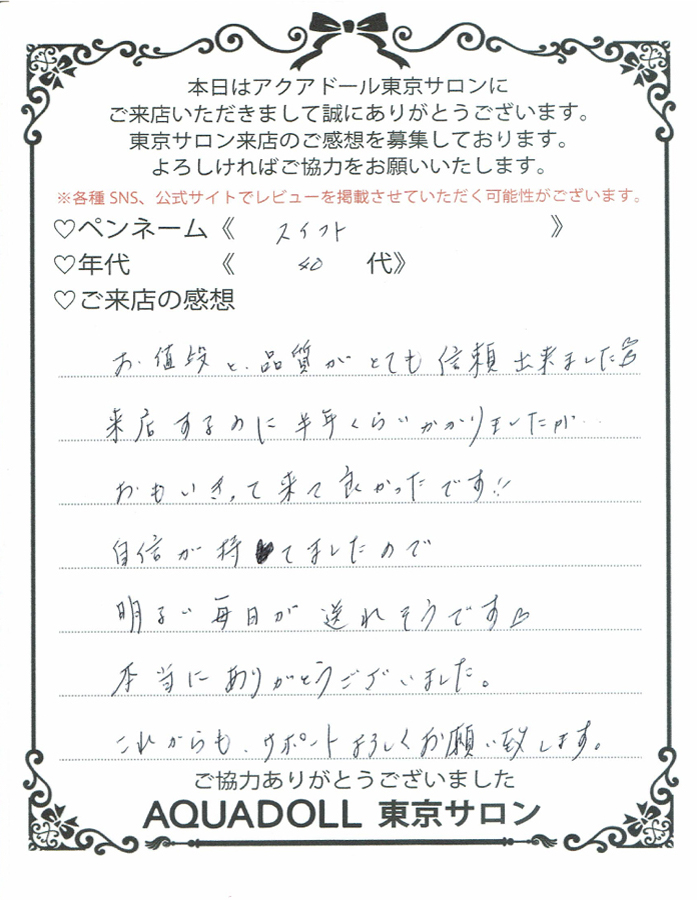 本日はアクアドール東京サロンに
ご来店いただきまして誠にありがとうございます。
東京サロン来店のご感想を募集しております。
よろしければご協力をお願いいたします。
※各種SNS、公式サイトでレビューを掲載させていただく可能性がございます。
♡ペンネーム《 スイフト 》
♡年代 《 40 代》
♡ご来店の感想
お値段と、品質がとても信頼出来ました
来店するのに半年くらいかかりましたが…
おもいきって来て良かったです!!
自信が持てましたので
明るい毎日が送れそうです
本当にありがとうございました。
これからも、サポートよろしくお願い致します。
ご協力ありがとうございました
AQUADOLL 東京サロン